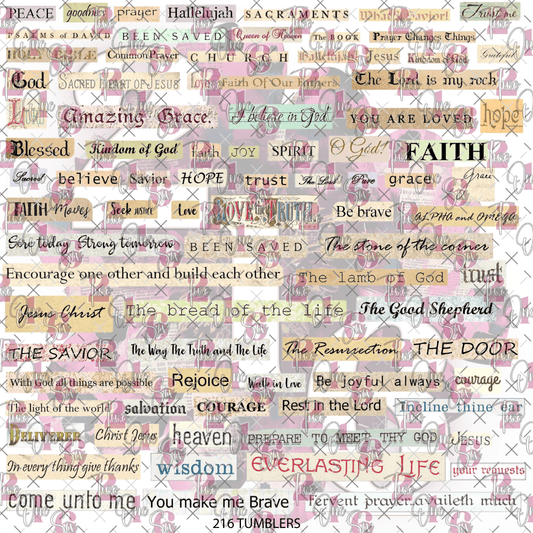 PEACE goodness prayer Hallelujah SACRAMENTS What a Savior! Trust me
PSALMS of DAVID BEEN SAVED Queen of Heaven The BOOK Prayer Changes Things
HOLY BIBLE Common Prayer CHURCH Hallelujah Jesus Kingdom of God Grateful
God SACRED HEART OF JESUS Love Faith Of Our Fathers The Lord is my rock
Amazing Grace. I believe in God YOU ARE LOVED hope
Blessed Kindom of God faith JOY SPIRIT O God! FAITH
Sacred believe Savior HOPE trust The Lord Pure grace Grace
FAITH Moves Seek WITHIN Love LOVE the TRUTH. Be brave ALPHA and OMEGA
Sore today Strong tomorrow BEEN SAVED The stone of the corner
Encourage one other and build each other The lamb of God trust
Jesus Christ The bread of the life The Good Shepherd
THE SAVIOR The Way The Truth and The Life The Resurrection THE DOOR
With God all things are possible Rejoice Walk in Love Be joyful always courage
The light of the world salvation COURAGE Rest in the Lord Incline thine ear
DELIVERER Christ Jesus heaven PREPARE TO MEET THY GOD JESUS
In every thing give thanks wisdom EVERLASTING LIFE your requests
come unto me You make me Brave fervent prayer availeth much
216 TUMBLERS